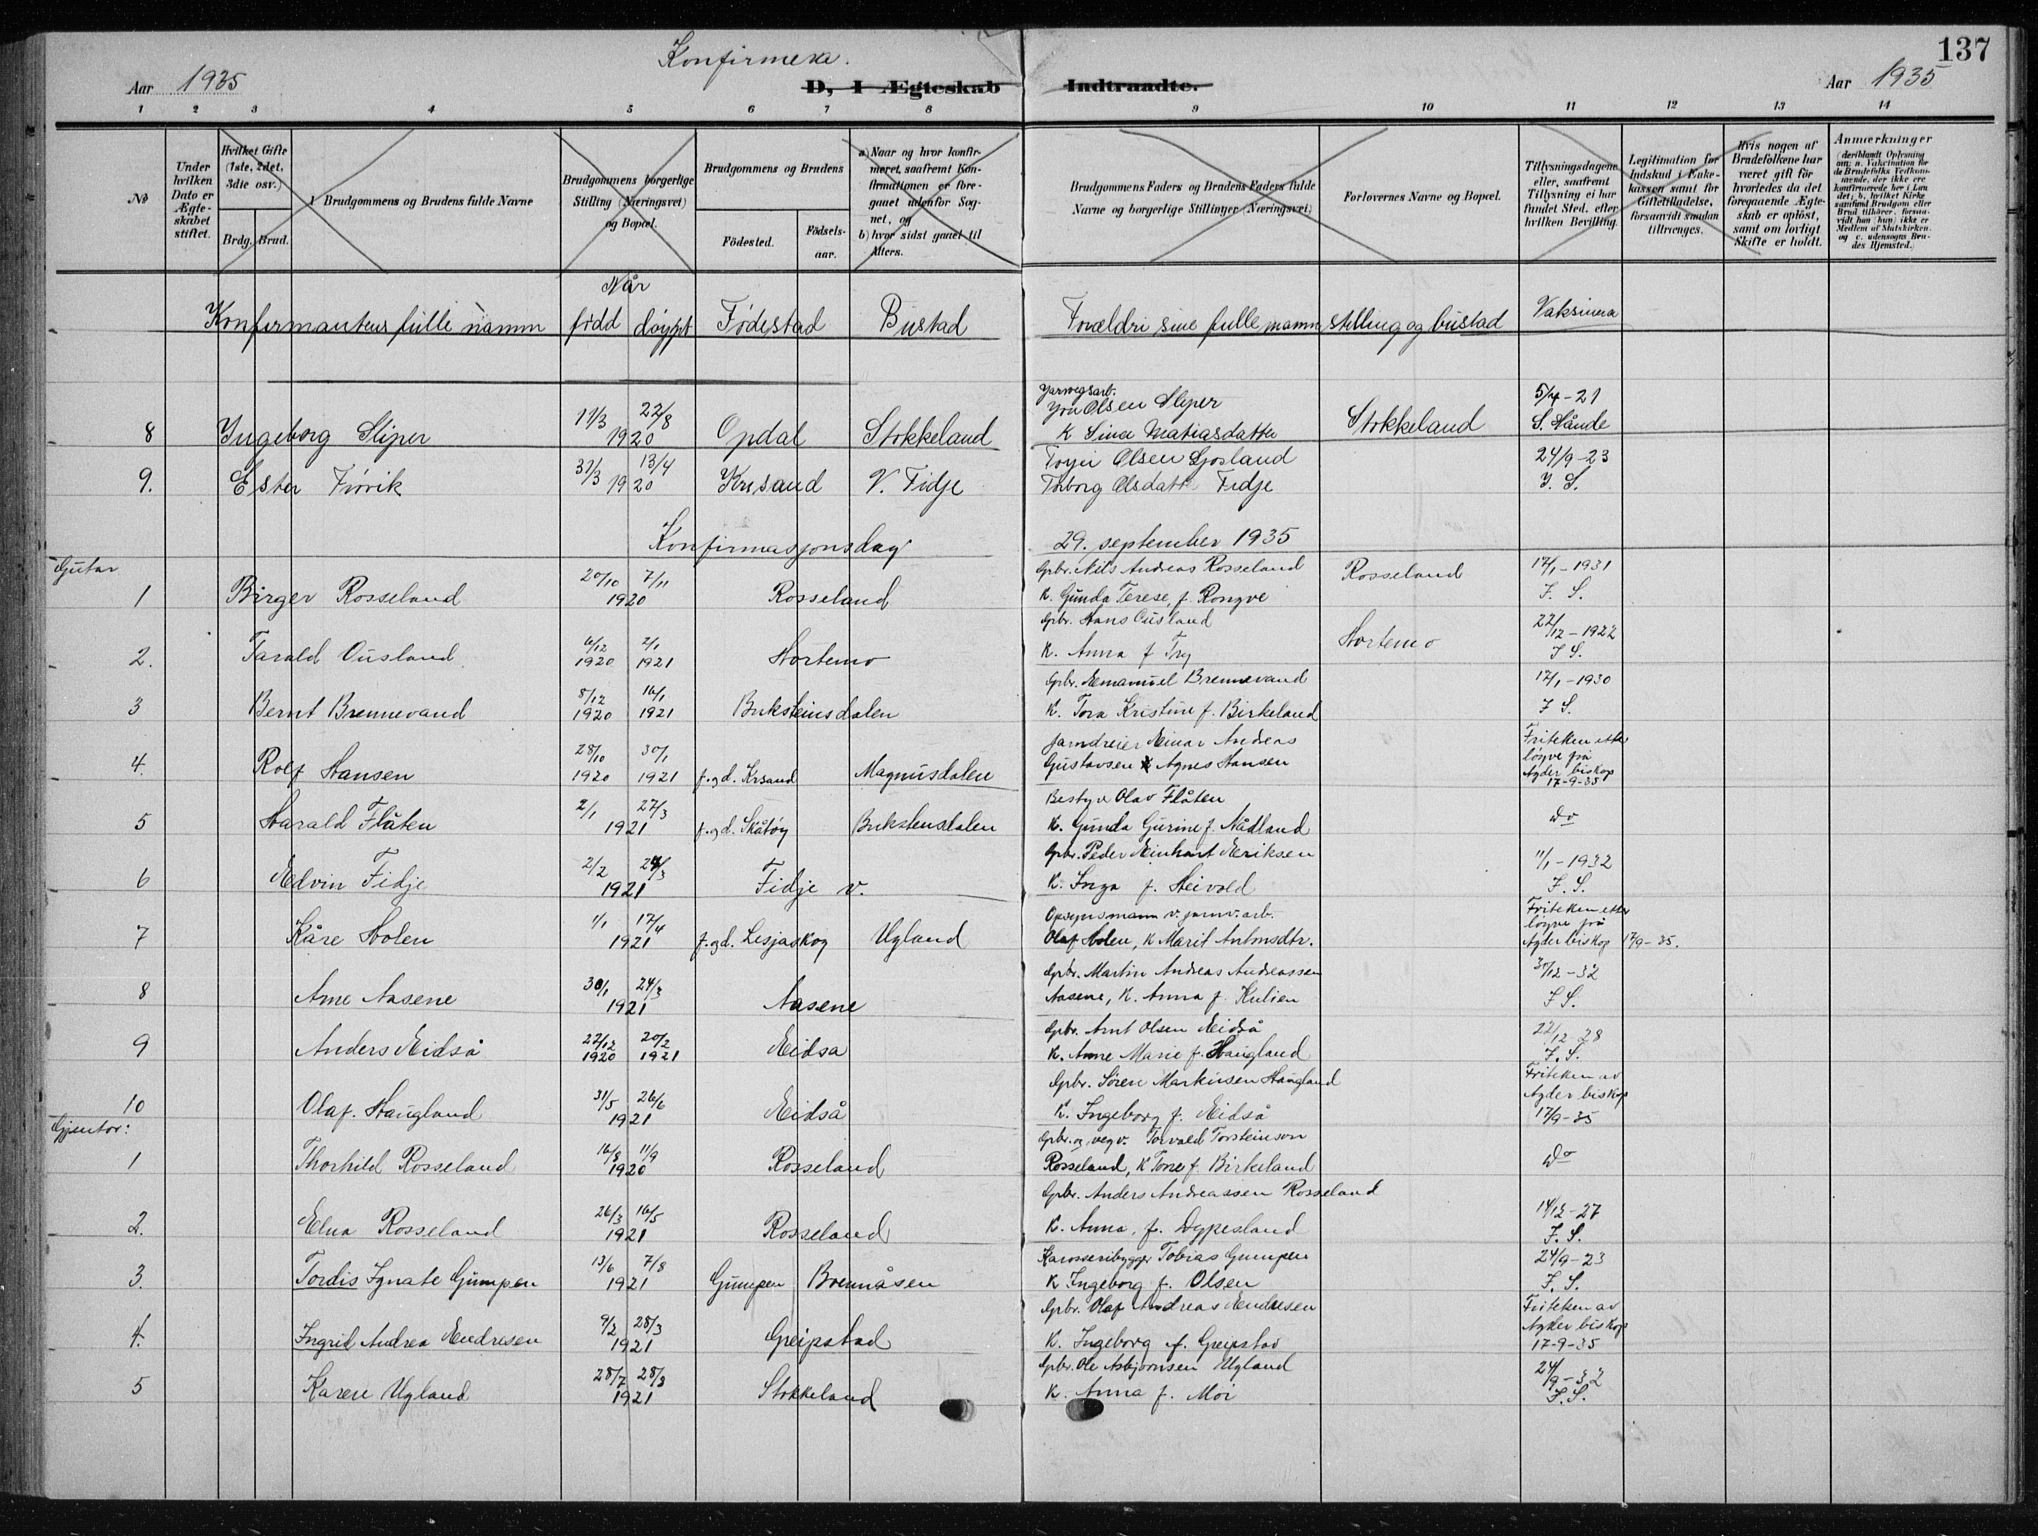 Konfirmera.
137
Aar 1935
D, I Ægteskab Indtraadte.
Aar 1935
1 2 3 4 5 6 7 8 9 10 11 12 13 14
No
Under hvilken Dato er Ægteskabet stiftet.
Hvilket Gifte (1ste, 2det, 3die osv.)
Brdg. Brud.
Brudgommens og Brudens fulde Navne
Brudgommens borgerlige Stilling (Næringsvei) og Bopæl.
Brudgommens og Brudens
Fødested. Fødselsaar.
a) Naar og hvor konfirmeret, saafremt Konfirmationen er foregaaet udenfor Sognet, og
b) hvor sidst gaaet til Alters.
Brudgommens Faders og Brudens Faders fulde Navne og borgerlige Stillinger (Næringsvei)
Forlovernes Navne og Bopæl.
Tillysningsdagene eller, saafremt Tillysning ei har fundet Sted, efter hvilken Bevilling.
Legitimation for Indskud i Enkekassen samt for Giftetilladelse, forsaavidt saadan tiltrænges.
Hvis nogen af Brudefolkene har været gift før hvorledes da det foregaaende Ægteskab er opløst, samt om lovligt Skifte er holdt.
Anmærkninger
Når
Konfirmantens fulle namn født døypt Fødestad Bustad Foreldri sine fulle namn stilling og bustad Vaksinera
8 Ingeborg Sliper 11/3 22/8 1920 Opdal Stokkeland Olsen Sliper K Sina Matiasdatter Stokkeland 5/4-21
9. Ester 31/3 13/4 1920 Krsand V. Fidje Olsen Torborg Olsdatt. Fidje 24/9-23
Konfirmasjonsdag 29. september 1935
Gutar
1 Birger Rosseland 20/10 7/11 1920 Rosseland Gbr. Nils Andreas Rosseland K. Gunda Terese, f. Rongve Rosseland 17/1-1931 J. S.
2. Tarald Ousland 6/12 1920 2/1 1921 Hortemo Gbr. Hans Ousland K. Anna f Try Hortemo 22/12-1922 J S.
3 Bernt Brennevand 8/12 1920 16/1 1921 Buksteinsdalen Gbr. Emanuel Brennevand K. Tora Kristine f. Birkeland 17/1-1930 J S.
4. Rolf Hansen 28/10 1920 30/1 1921 f. og d. Krsand Magnusdalen Jarndreier Einar Andreas Gustavsen K Agnes Hansen Friteken etter løyve frå Agder biskop 17-9-35
5 Harald Flåten 2/1 27/3 1921 f. og d. Skåtøy Bukstensdalen Bestyr Olav Flåten K. Gunda Gurine f. Nådland do
6 Edvin Fidje 2/2 1921 Fidje v. Gbr. Peder Einhart Eriksen K. Inga f. Heivold 11/1-1932 J. S.
7 Kåre Holen 1/1 17/4 1921 f. og d. Lesjaskog Ugland Opsynsmann v. jarnv. arb. Olaf Holen, K Marit Antonsdtr. Friteken etter løyve frå Agder biskop 17/9-35.
8 Arne Aasene 30/1 24/3 1921 Aasene Gbr. Martin Andreas Andreassen Aasene, K. Anna f. Kulien 30/12-32 J S.
9 Anders Eidså 22/12 1920 20/2 1921 Eidsa Gbr. Arnt Olsen Eidså K. Anne Marie f. Haugland 22/12-28 J. S.
10 Olaf. Haugland 31/5 26/6 1921 Eidså Gbr. Sören Markusen Haugland K. Ingeborg f. Eidså Friteken av Agder biskop 17/9-35
Gjentor:
1 Thorhild Rosseland 16/8 11/9 1920 Rosseland Gbr. og vegv. Torvald Torsteinson Rosseland, K Tone f. Birkeland do
2. Elna Rosseland 26/3 16/5 1921 Rosseland Gbr. Anders Andreassen Rosseland K. Anna, f. Dyppesland 14/12-27 J. S.
3. Tordis Ignate Gumpen 13/6 7/8 1921 Gumpen Brennåsen Karosseribygger Tobias Gumpen K Ingeborg f. Olsen 24/9-23 J. S.
4. Ingrid Andrea Endresen 9/2 28/3 1921 Greipstad Gbr. Olaf Andreas Endresen K. Ingeborg f. Greipstad Friteken av Agder biskop 17-9-35
5 Karen Ugland 28/7 28/8 1921 Stokkeland Gbr. Ole Asbjørnsen Ugland K. Anna f. Moi 24/9-32 J. S.